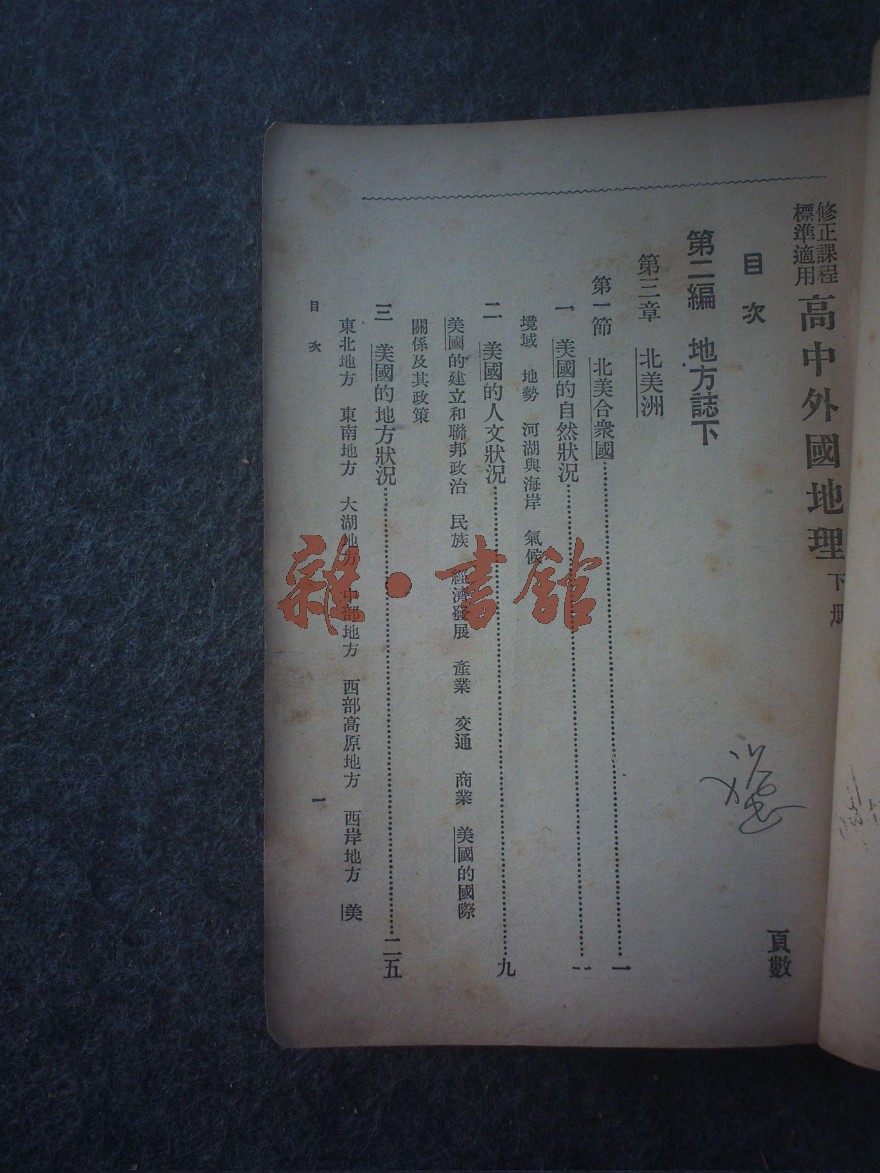 修正課程
標準適用
高中外國地理 下册
目次
頁數
第二編 地方誌下
第三章 北美洲
第一節 北美合衆國……一
一 美國的自然狀況……一
境域 地勢 河湖與海岸 氣候
二 美國的人文狀況……九
美國的建立和聯邦政治 民族 經濟發展 產業 交通 商業 美國的國際
關係及其政策
三 美國的地方狀況……二五
東北地方 東南地方 大湖地方 中部地方 西部高原地方 西岸地方 美
目次
一
雜·書館